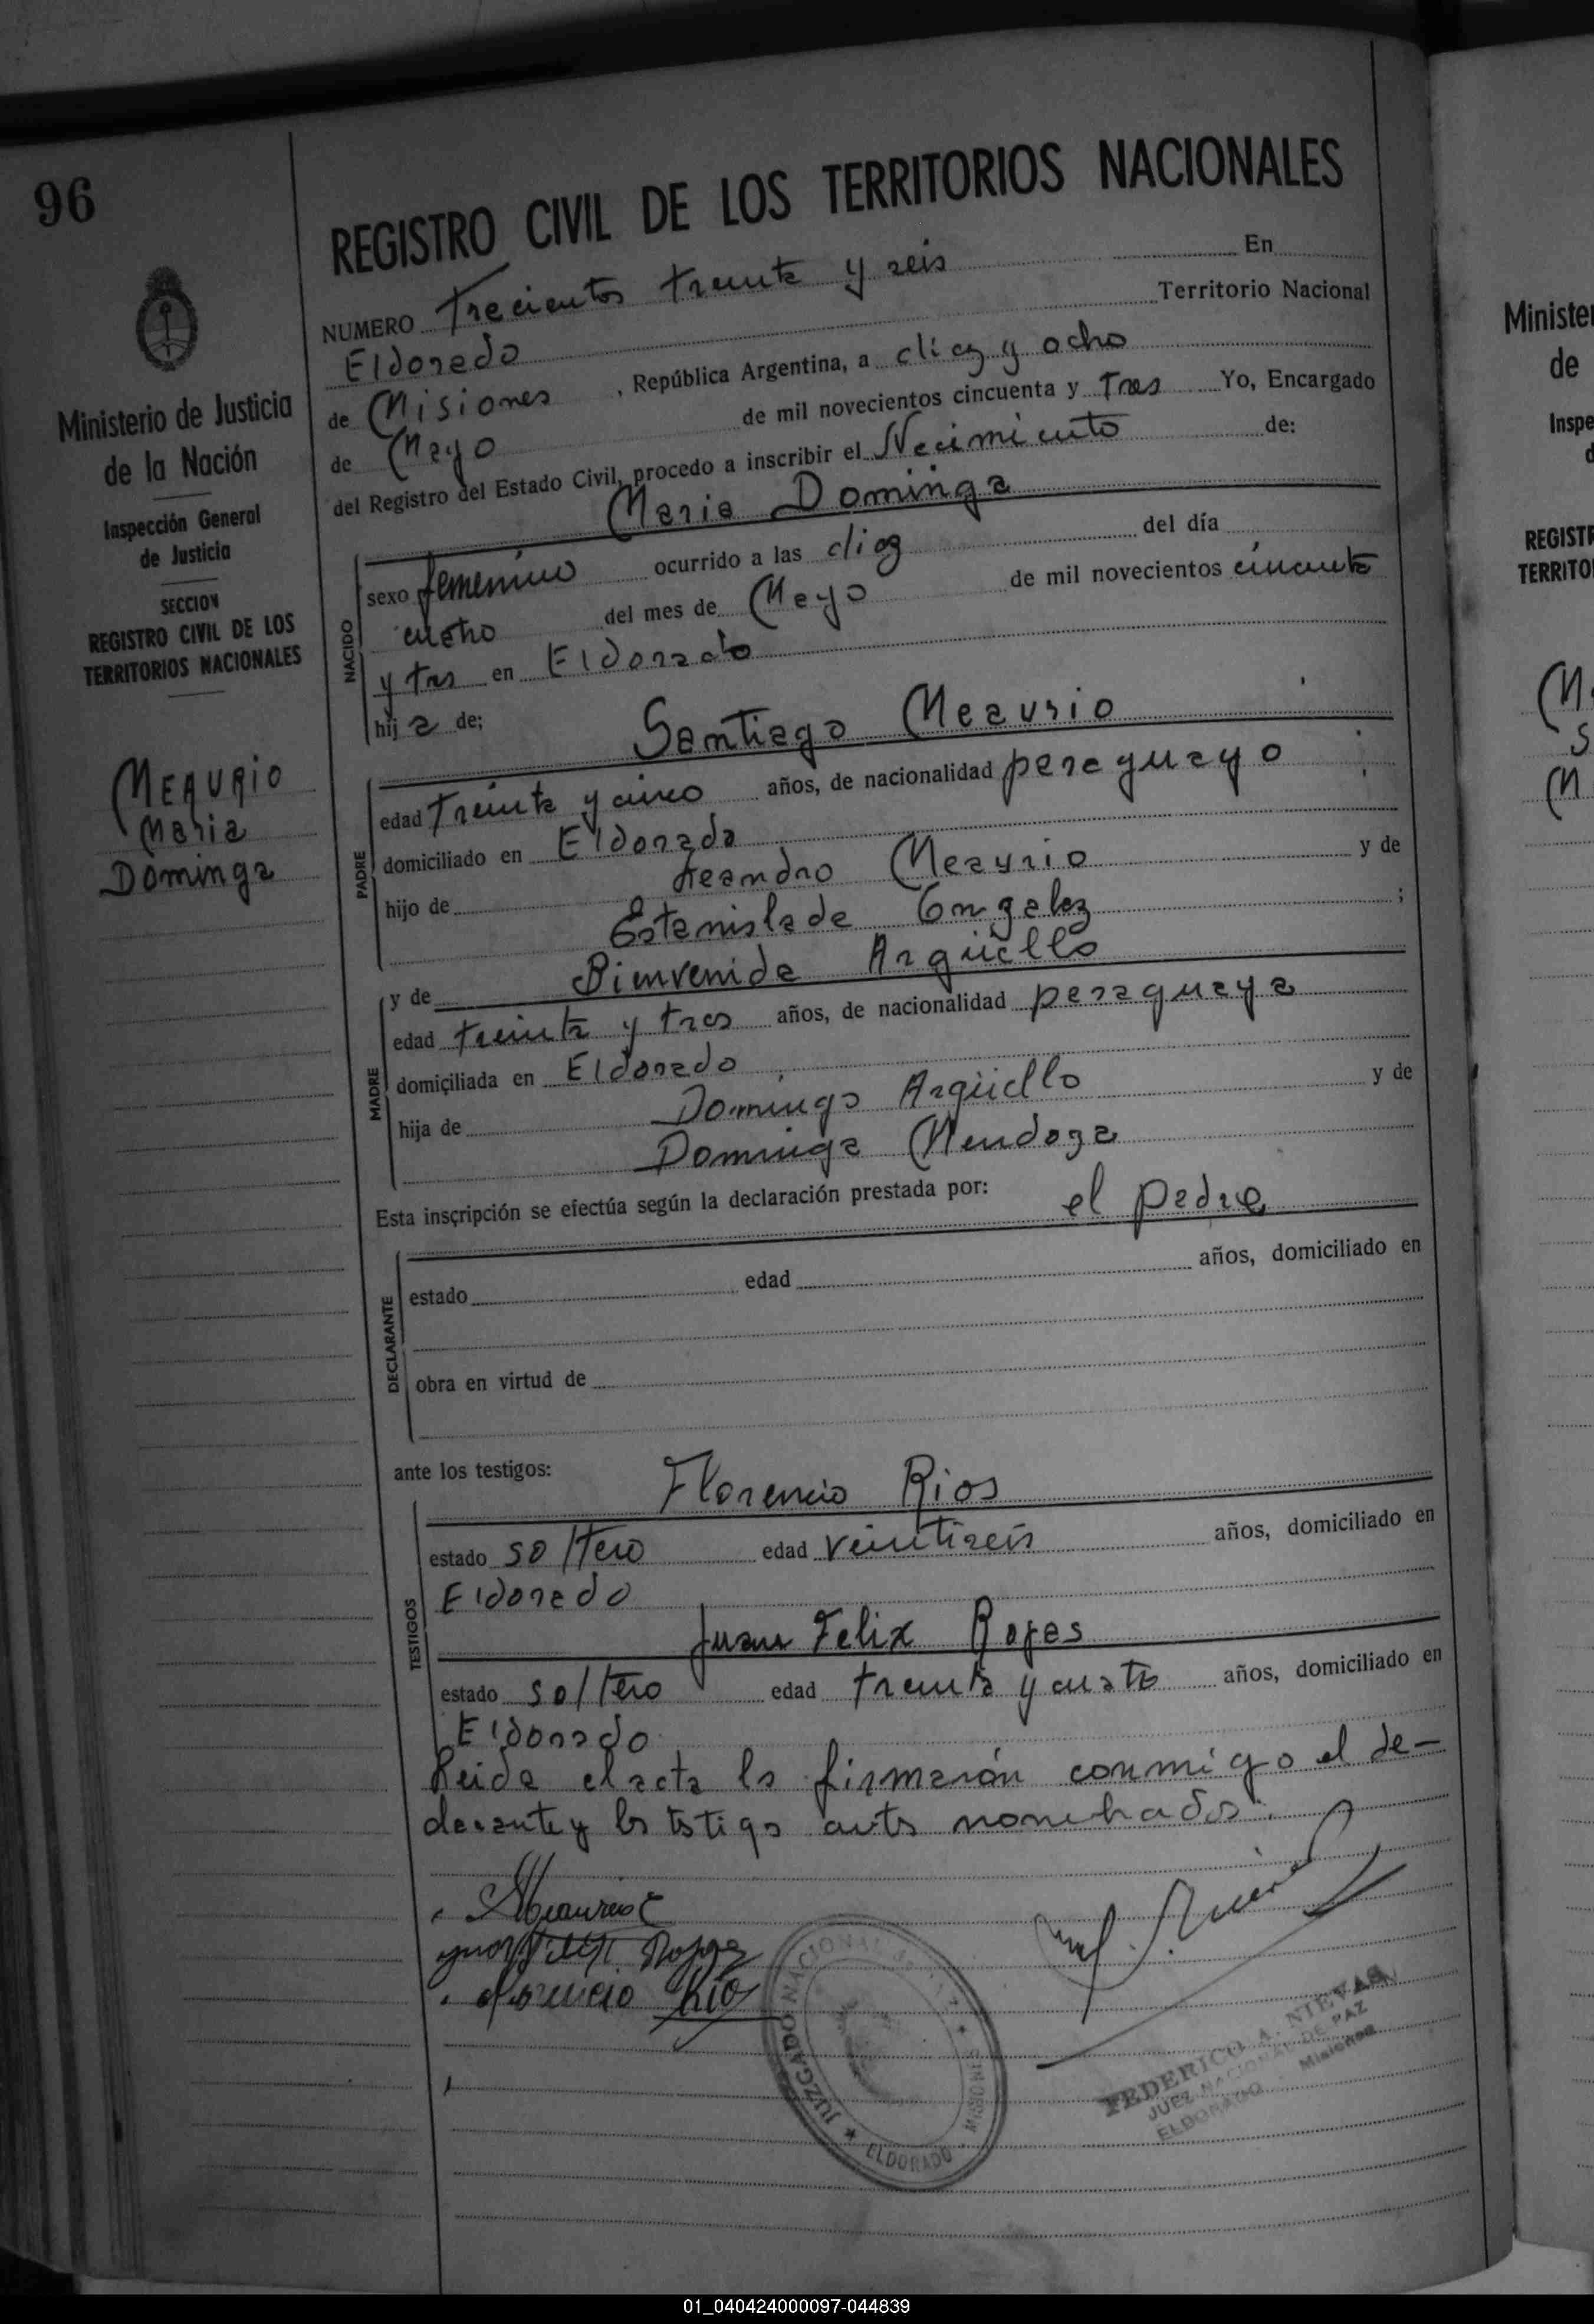 96
Ministerio de Justicia
de la Nación
Inspección General
de Justicia
SECCION
REGISTRO CIVIL DE LOS
TERRITORIOS NACIONALES
MEAURIO
Maria
Dominga
REGISTRO CIVIL DE LOS TERRITORIOS NACIONALES
NUMERO Trecientos treinta y seis En
Eldorado Territorio Nacional
de Misiones , República Argentina, a diez y ocho
de Mayo de mil novecientos cincuenta y Tres Yo, Encargado
del Registro del Estado Civil, procedo a inscribir el Nacimiento de:
Maria Dominga
NACIDO
sexo femenino ocurrido a las diez del día
cuatro del mes de Mayo de mil novecientos cincuenta
y tres en Eldorado
hija de;
Santiago Meaurio
PADRE
edad treinta y cinco años, de nacionalidad paraguayo
domiciliado en Eldorado
hijo de Leandro Meaurio y de
Estanislada Gonzalez ;
MADRE
y de Bienvenida Argüello
edad treinta y tres años, de nacionalidad paraguaya
domiciliada en Eldorado
hija de Domingo Argüello y de
Dominga Mendoza
Esta inscripción se efectúa según la declaración prestada por: el padre
DECLARANTE
estado edad años, domiciliado en
obra en virtud de
ante los testigos: Florencio Rios
TESTIGOS
estado soltero edad veintiseis años, domiciliado en
Eldorado
Juan Felix Rojas
estado soltero edad treinta y cuatro años, domiciliado en
Eldorado
Leida el acta la firmarón conmigo el de-
clarante y los testigos antes nombrados.
Florencio Rios
JUZGADO NACIONAL DE PAZ ★ MISIONES
★ ELDORADO
FEDERICO A. NIEVAS
JUEZ NACIONAL DE PAZ
ELDORADO - Misiones
Minister
de
Inspe
d
REGISTR
TERRITO
01_040424000097-044839